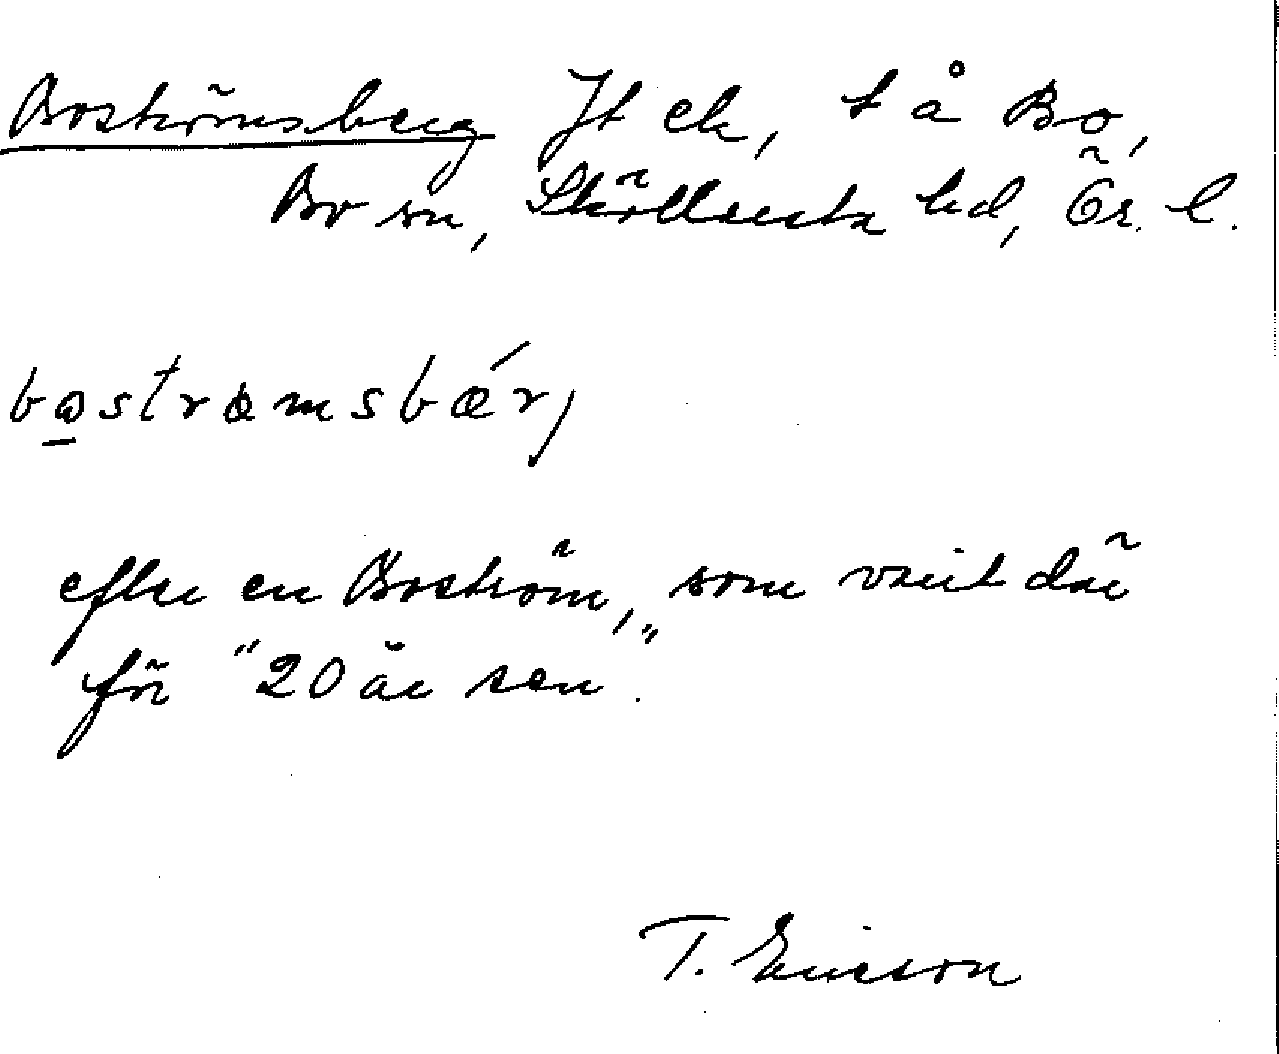 Boströmsberg Jt ek, t å Bo,
Bo sn, Sköllersta hd, Ör. l.
bo̲strømsbær,
efter en Boström, som varit där
för "20 år sen".
T. Ericson